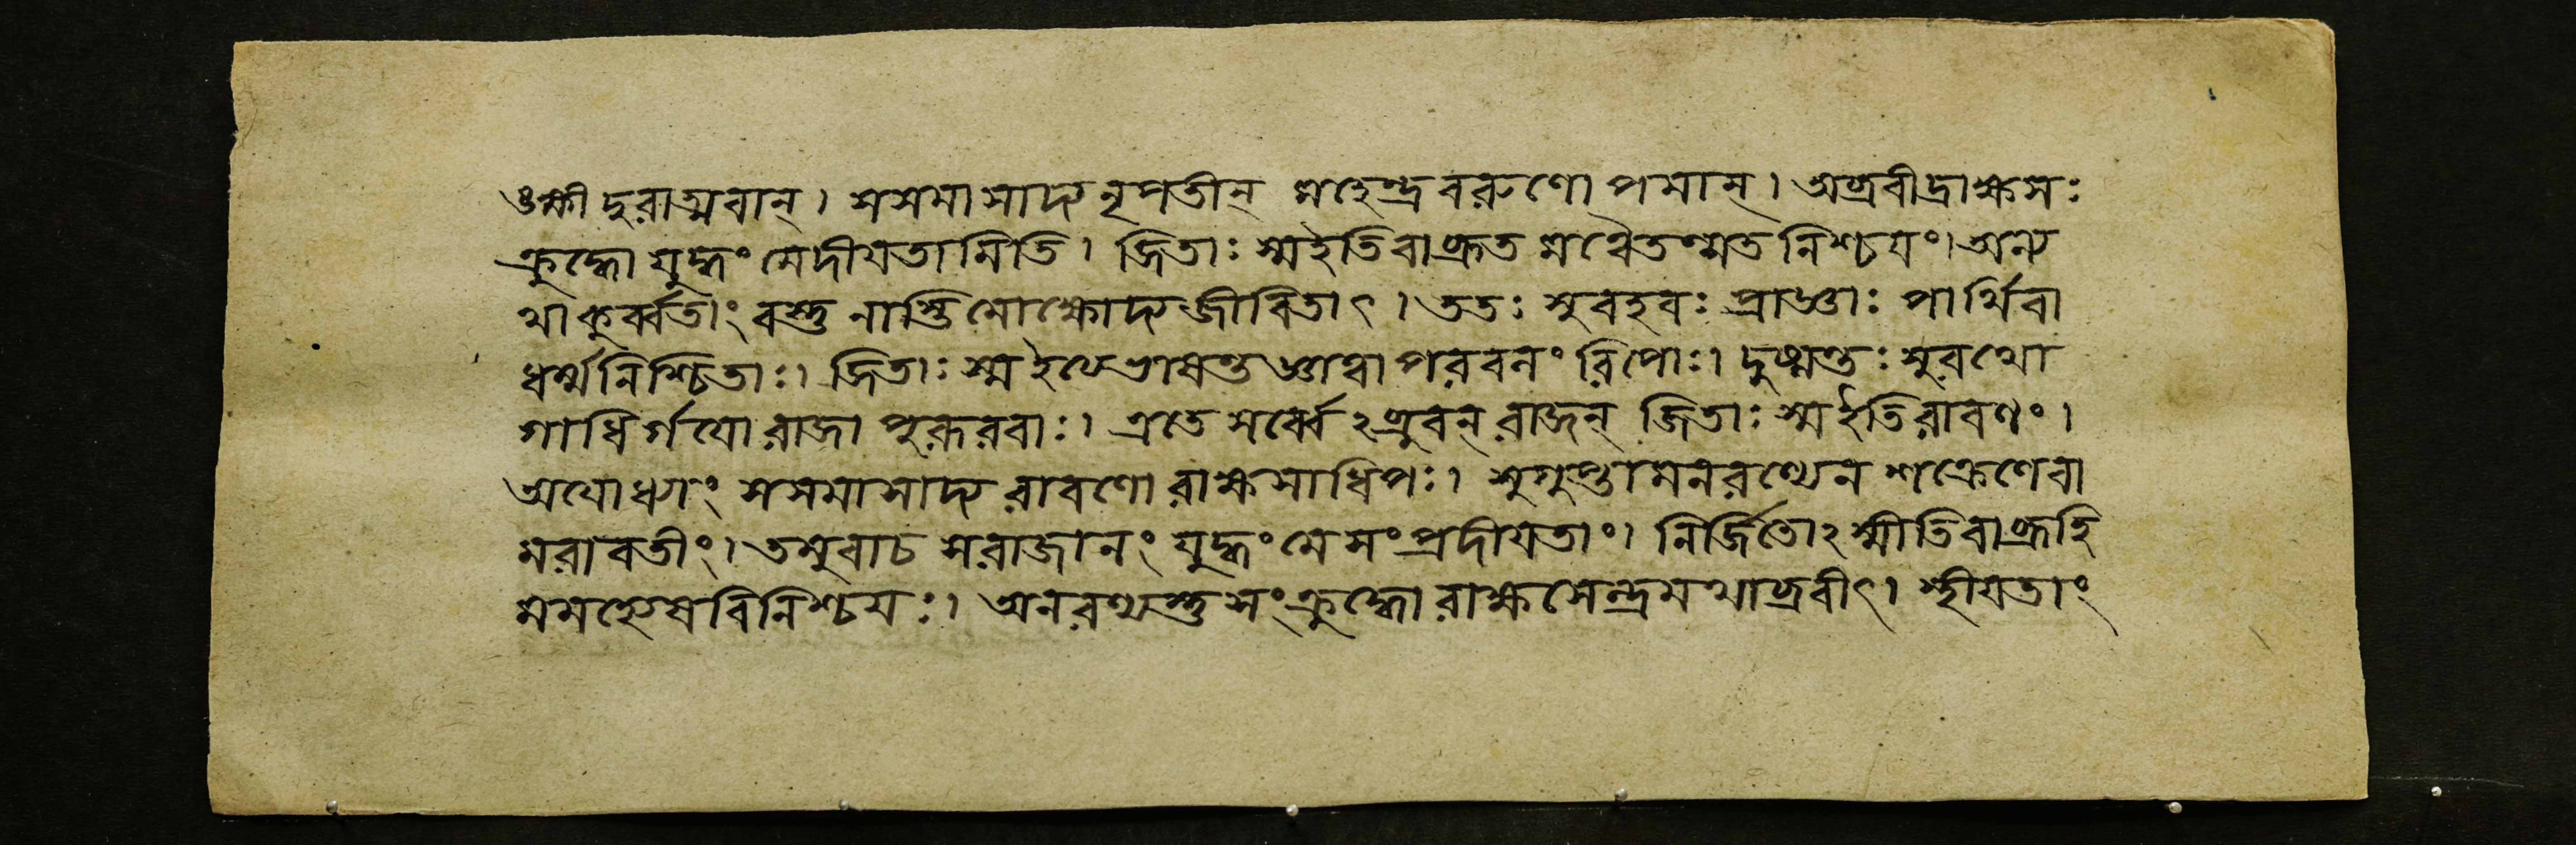 ঙক্ষী দুরাত্মবান্। সসমাসাদ্য নৃপতীন্ মহেন্দ্রবরুণোপমান্। অব্রবীদ্রাক্ষসঃ
ক্রুদ্ধো যুদ্ধং মেদীয়তামিতি। জিতাঃ স্মইতিবাব্রূত মমৈতন্মত নিশ্চয়ং। অন্য
থাকুর্ব্বতাং বস্তু নাস্তিমোক্ষোদ্য জীবিতাৎ। ততঃ সুবহবঃ প্রাজ্ঞাঃ পার্থিবা
ধর্ম্মনিশ্চিতাঃ। জিতাঃ স্মইত্যেভাষন্ত জ্ঞাত্বাপরবনং রিপোঃ। দুষ্মন্তঃ সুরথো
গাধির্গয়োরাজা পুরূরবাঃ। এতে সর্ব্বেঽব্রুবন্ রাজন্ জিতাঃ স্মইতিরাবণং।
অযোধ্যাং সসমাসাদ্য রাবণো রাক্ষসাধিপঃ। সুগুপ্তামনরণ্যেন শক্রেণেবা
মরাবতীং। তমুবাচ সরাজানং যুদ্ধং মেসংপ্রদীয়তাং। নির্জিতোঽস্মীতিবাব্রূহি
মমহ্যেষবিনিশ্চয়ঃ। অনরণ্যস্তুসংক্রুদ্ধো রাক্ষসেন্দ্রমথাব্রবীৎ। স্থীয়তাং